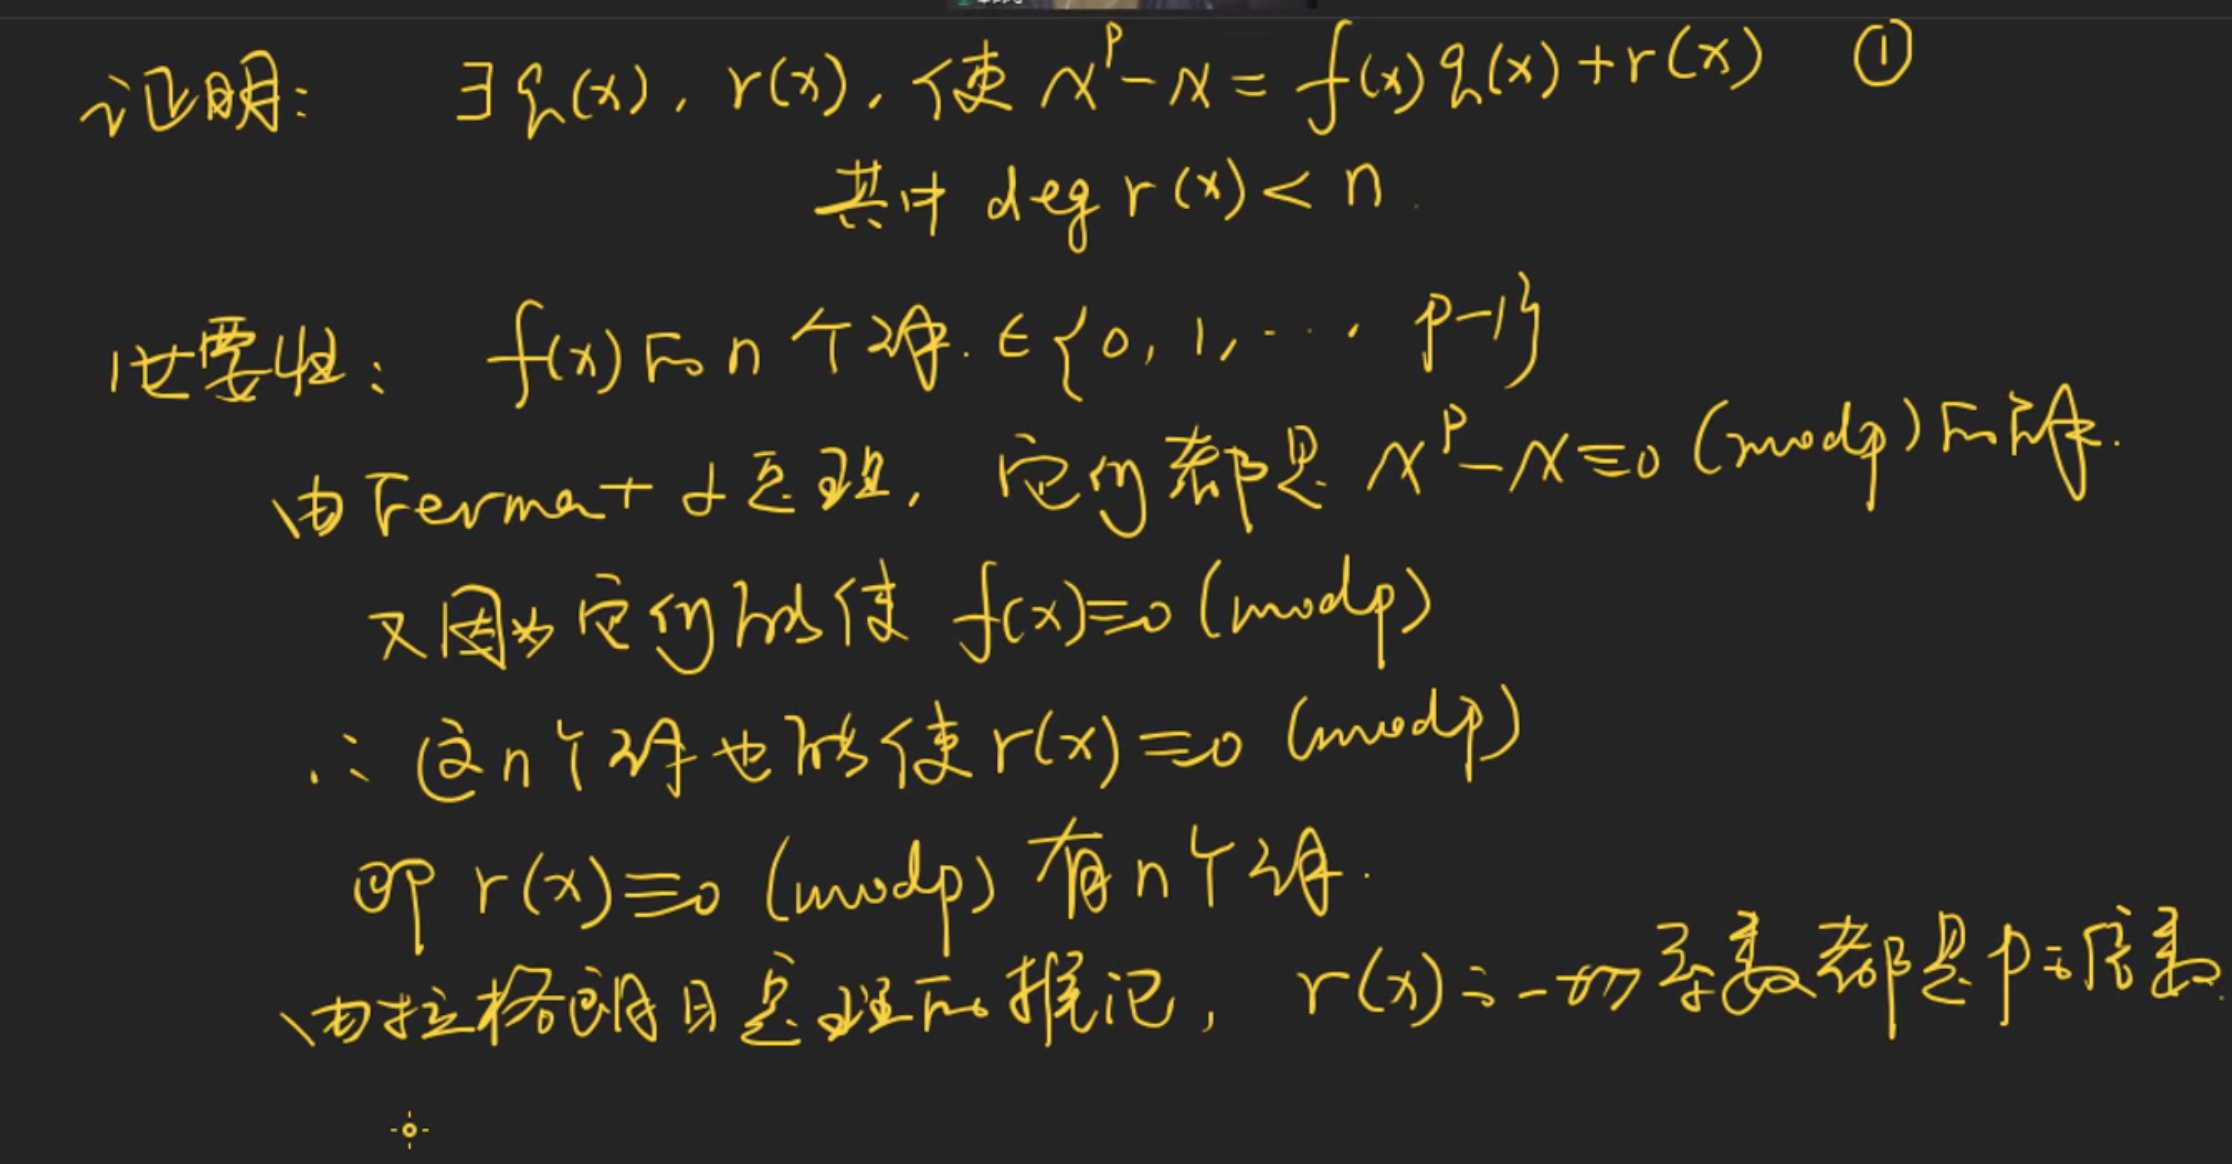 证明: ∃q(x), r(x), 使 x^p-x=f(x)q(x)+r(x) ①
其中 deg r(x)<n.
必要性: f(x)的n个解.∈{0,1,…, p-1}
由Fermat小定理, 它们都是 x^p-x≡0 (modp)的解.
又因为它们能使 f(x)≡0 (modp)
∴ 这n个解也能使r(x)≡0 (modp)
即 r(x)≡0 (modp) 有n个解.
由拉格朗日定理的推论, r(x)之一切系数都是p之倍数.